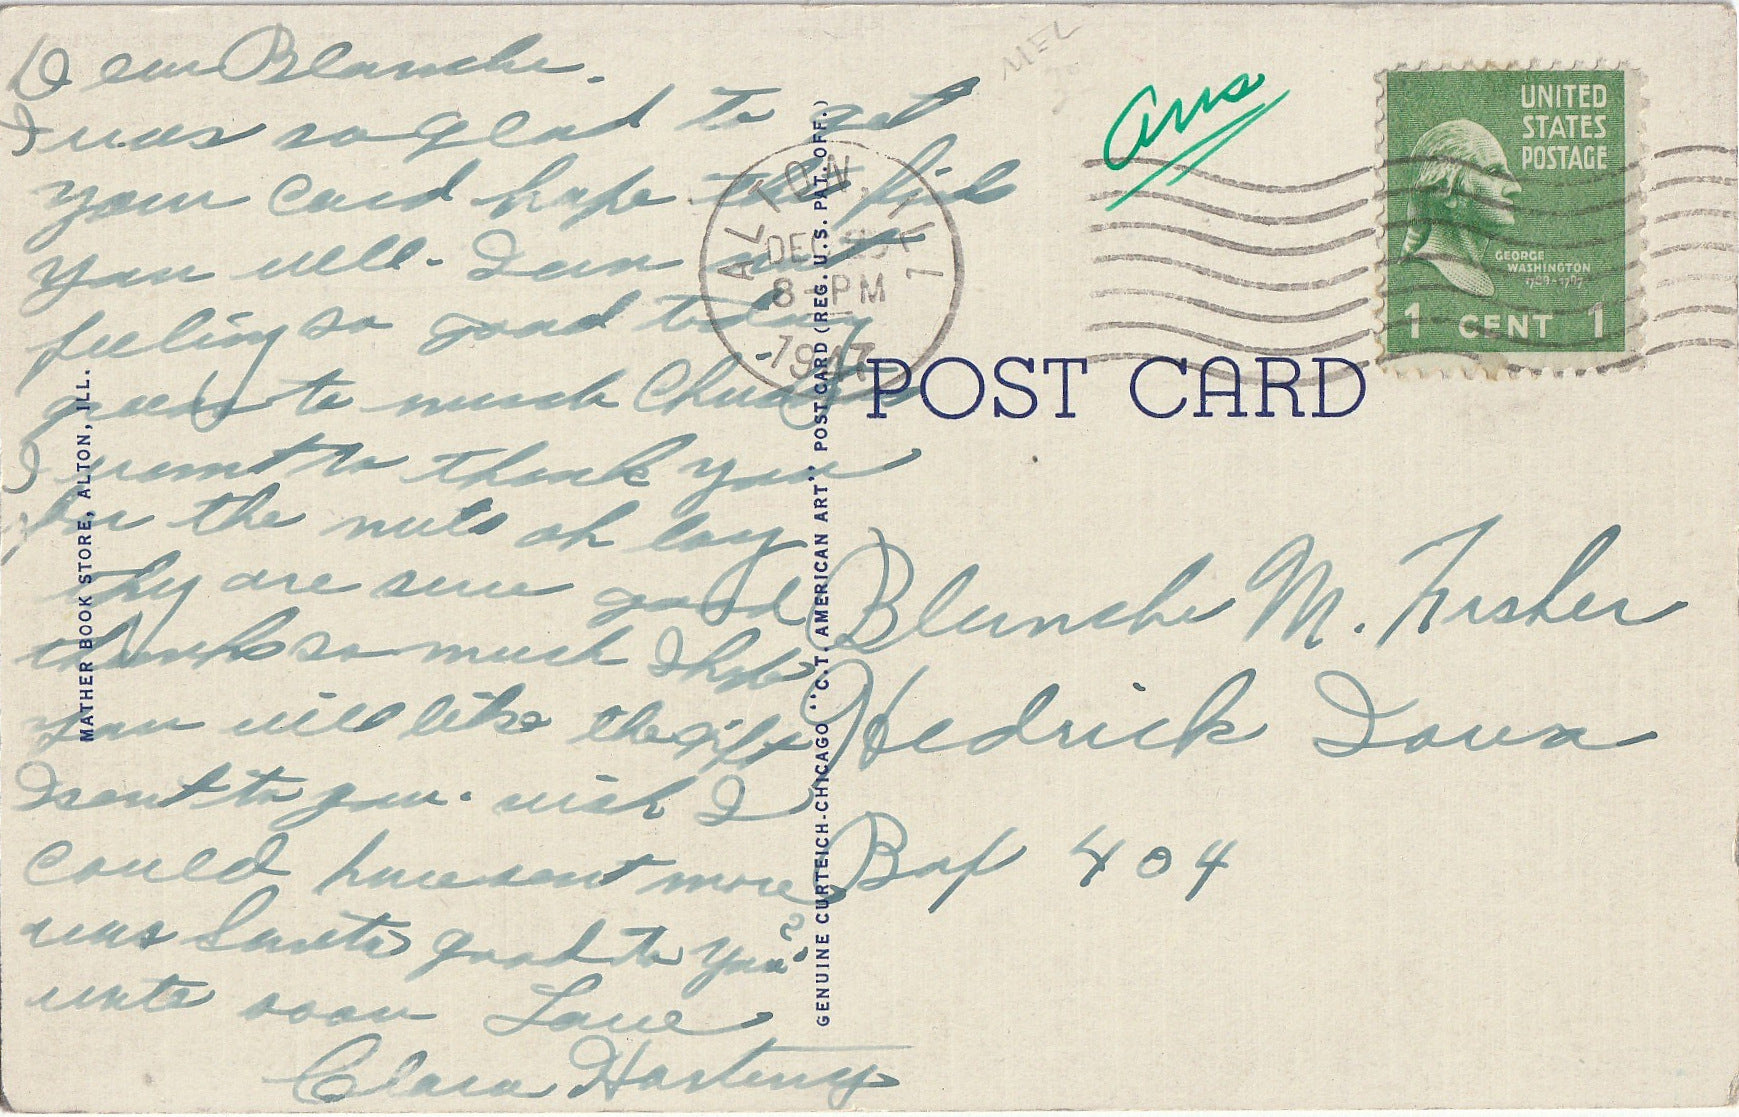 Dear Blanche.
I was so glad to get
your card hope this finds
you well. I am not
feeling so good today
guess to much Christmas
I want to thank you
for the nuts oh boy
they are sure good
thanks so much I hope
you will like the gift
I sent to you. wish I
could have sent more
was Santa good to you?
write soon Love
Clara
MATHER BOOK STORE, ALTON, ILL.
GENUINE CURTEICH-CHICAGO "C.T. AMERICAN ART" POST CARD (REG. U.S. PAT. OFF.)
ALTON, ILL
DEC
8-PM
1947
MEL
Ans
UNITED
STATES
POSTAGE
GEORGE
WASHINGTON
1 CENT 1
POST CARD
Blanche M. Fisher
Hedrick Iowa
Box 404